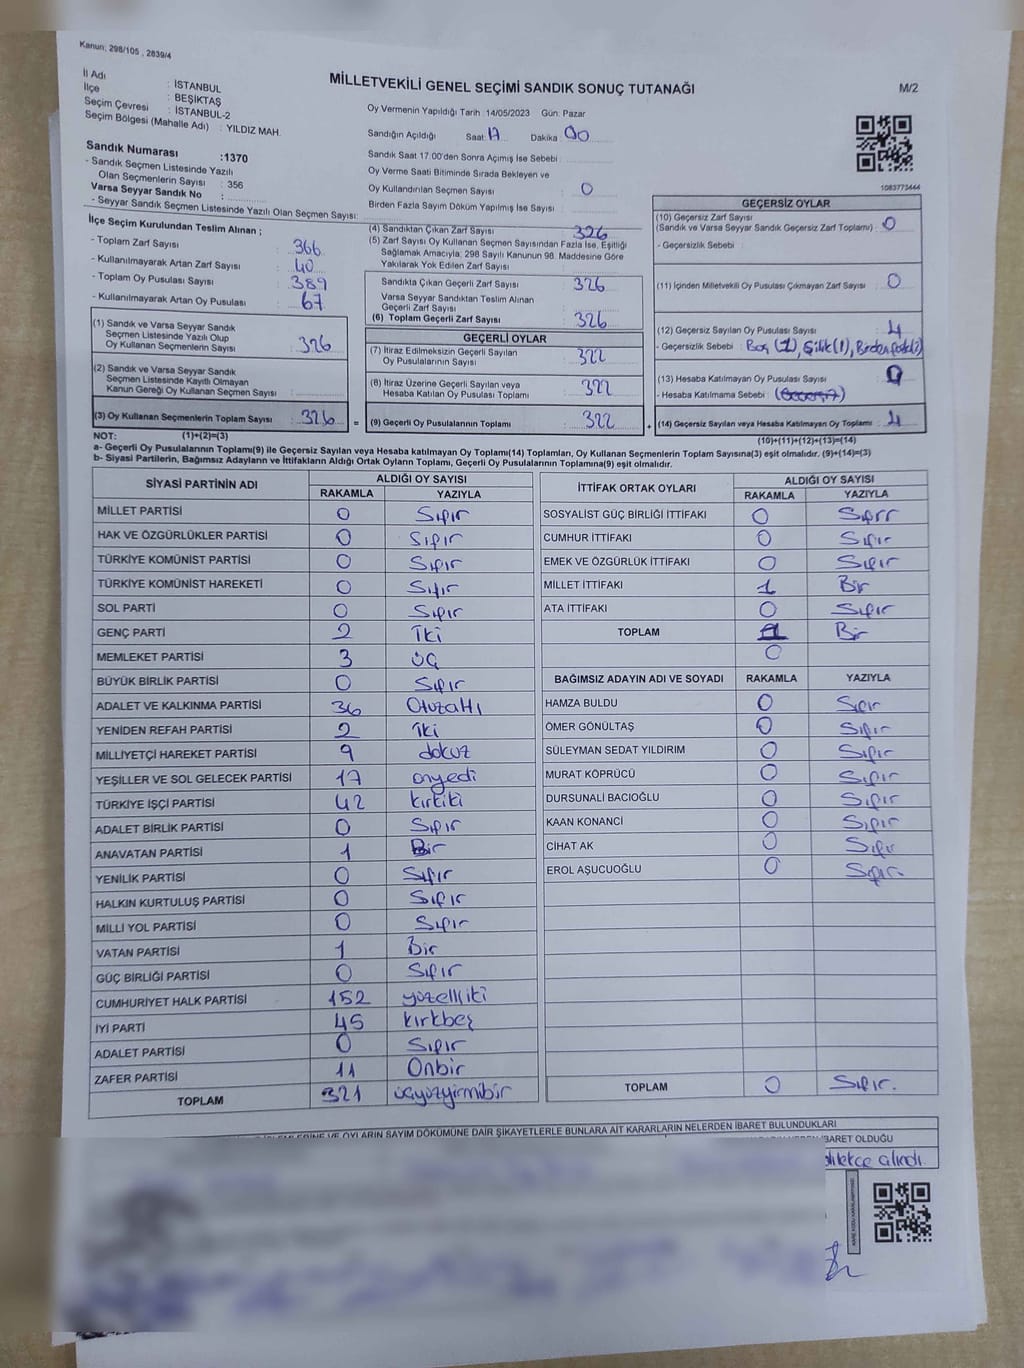 Kanun; 298/105 , 2839/4
MİLLETVEKİLİ GENEL SEÇİMİ SANDIK SONUÇ TUTANAĞI
M/2
İl Adı : İSTANBUL
İlçe : BEŞİKTAŞ
Seçim Çevresi : İSTANBUL-2
Seçim Bölgesi (Mahalle Adı) : YILDIZ MAH.
Sandık Numarası :1370
- Sandık Seçmen Listesinde Yazılı
Olan Seçmenlerin Sayısı : 356
Varsa Seyyar Sandık No :
- Seyyar Sandık Seçmen Listesinde Yazılı Olan Seçmen Sayısı:
Oy Vermenin Yapıldığı Tarih :14/05/2023 Gün: Pazar
Sandığın Açıldığı Saat 17 Dakika 00
Sandık Saat 17.00'den Sonra Açımış İse Sebebi :
Oy Verme Saati Bitiminde Sırada Bekleyen ve
Oy Kullandırılan Seçmen Sayısı : 0
Birden Fazla Sayım Döküm Yapılmış İse Sayısı :
1083773444
İlçe Seçim Kurulundan Teslim Alınan ;
- Toplam Zarf Sayısı : 366
- Kullanılmayarak Artan Zarf Sayısı : 40
- Toplam Oy Pusulası Sayısı : 389
- Kullanılmayarak Artan Oy Pusulası : 67
(1) Sandık ve Varsa Seyyar Sandık
Seçmen Listesinde Yazılı Olup
Oy Kullanan Seçmenlerin Sayısı : 326
(2) Sandık ve Varsa Seyyar Sandık
Seçmen Listesinde Kayıtlı Olmayan
Kanun Gereği Oy Kullanan Seçmen Sayısı :
(3) Oy Kullanan Seçmenlerin Toplam Sayısı : 326 =
(4) Sandıktan Çıkan Zarf Sayısı : 326
(5) Zarf Sayısı Oy Kullanan Seçmen Sayısından Fazla İse, Eşitliği
Sağlamak Amacıyla; 298 Sayılı Kanunun 98. Maddesine Göre
Yakılarak Yok Edilen Zarf Sayısı :
Sandıkta Çıkan Geçerli Zarf Sayısı : 326
Varsa Seyyar Sandıktan Teslim Alınan
Geçerli Zarf Sayısı :
(6) Toplam Geçerli Zarf Sayısı : 326
GEÇERLİ OYLAR
(7) İtiraz Edilmeksizin Geçerli Sayılan
Oy Pusulalarının Sayısı : 322
(8) İtiraz Üzerine Geçerli Sayılan veya
Hesaba Katılan Oy Pusulası Toplamı : 322
(9) Geçerli Oy Pusulalarının Toplamı : 322 +
GEÇERSİZ OYLAR
(10) Geçersiz Zarf Sayısı
(Sandık ve Varsa Seyyar Sandık Geçersiz Zarf Toplamı) : 0
- Geçersizlik Sebebi :
(11) İçinden Milletvekili Oy Pusulası Çıkmayan Zarf Sayısı : 0
(12) Geçersiz Sayılan Oy Pusulası Sayısı : 4
- Geçersizlik Sebebi : Boş (1), Silik(1),
(13) Hesaba Katılmayan Oy Pusulası Sayısı : 0
- Hesaba Katılmama Sebebi :
(14) Geçersiz Sayılan veya Hesaba Katılmayan Oy Toplamı : 4
NOT: (1)+(2)=(3) (10)+(11)+(12)+(13)=(14)
a- Geçerli Oy Pusulalarının Toplamı(9) ile Geçersiz Sayılan veya Hesaba katılmayan Oy Toplamı(14) Toplamları, Oy Kullanan Seçmenlerin Toplam Sayısına(3) eşit olmalıdır. (9)+(14)=(3)
b- Siyasi Partilerin, Bağımsız Adayların ve İttifakların Aldığı Ortak Oyların Toplamı, Geçerli Oy Pusulalarının Toplamına(9) eşit olmalıdır.
SİYASİ PARTİNİN ADI ALDIĞI OY SAYISI
RAKAMLA YAZIYLA
MİLLET PARTİSİ 0 Sıfır
HAK VE ÖZGÜRLÜKLER PARTİSİ 0 Sıfır
TÜRKİYE KOMÜNİST PARTİSİ 0 Sıfır
TÜRKİYE KOMÜNİST HAREKETİ 0 Sıfır
SOL PARTİ 0 Sıfır
GENÇ PARTİ 2 İki
MEMLEKET PARTİSİ 3 üç
BÜYÜK BİRLİK PARTİSİ 0 Sıfır
ADALET VE KALKINMA PARTİSİ 36 Otuzaltı
YENİDEN REFAH PARTİSİ 2 İki
MİLLİYETÇİ HAREKET PARTİSİ 9 dokuz
YEŞİLLER VE SOL GELECEK PARTİSİ 17 onyedi
TÜRKİYE İŞÇİ PARTİSİ 42 kırkiki
ADALET BİRLİK PARTİSİ 0 Sıfır
ANAVATAN PARTİSİ 1 Bir
YENİLİK PARTİSİ 0 Sıfır
HALKIN KURTULUŞ PARTİSİ 0 Sıfır
MİLLİ YOL PARTİSİ 0 Sıfır
VATAN PARTİSİ 1 Bir
GÜÇ BİRLİĞİ PARTİSİ 0 Sıfır
CUMHURİYET HALK PARTİSİ 152 yüzelliiki
İYİ PARTİ 45 kırkbeş
ADALET PARTİSİ 0 Sıfır
ZAFER PARTİSİ 11 Onbir
TOPLAM 321 üçyüzyirmibir
İTTİFAK ORTAK OYLARI ALDIĞI OY SAYISI
RAKAMLA YAZIYLA
SOSYALİST GÜÇ BİRLİĞİ İTTİFAKI 0 Sıfır
CUMHUR İTTİFAKI 0 Sıfır
EMEK VE ÖZGÜRLÜK İTTİFAKI 0 Sıfır
MİLLET İTTİFAKI 1 Bir
ATA İTTİFAKI 0 Sıfır
TOPLAM 1 Bir
0
BAĞIMSIZ ADAYIN ADI VE SOYADI RAKAMLA YAZIYLA
HAMZA BULDU 0 Sıfır
ÖMER GÖNÜLTAŞ 0 Sıfır
SÜLEYMAN SEDAT YILDIRIM 0 Sıfır
MURAT KÖPRÜCÜ 0 Sıfır
DURSUNALİ BACIOĞLU 0 Sıfır
KAAN KONANCİ 0 Sıfır
CİHAT AK 0 Sıfır
EROL AŞUCUOĞLU 0 Sıfır
TOPLAM 0 Sıfır.
VE OYLARIN SAYIM DÖKÜMÜNE DAİR ŞİKAYETLERLE BUNLARA AİT KARARLARIN NELERDEN İBARET BULUNDUKLARI
İBARET OLDUĞU
dilekçe alındı.